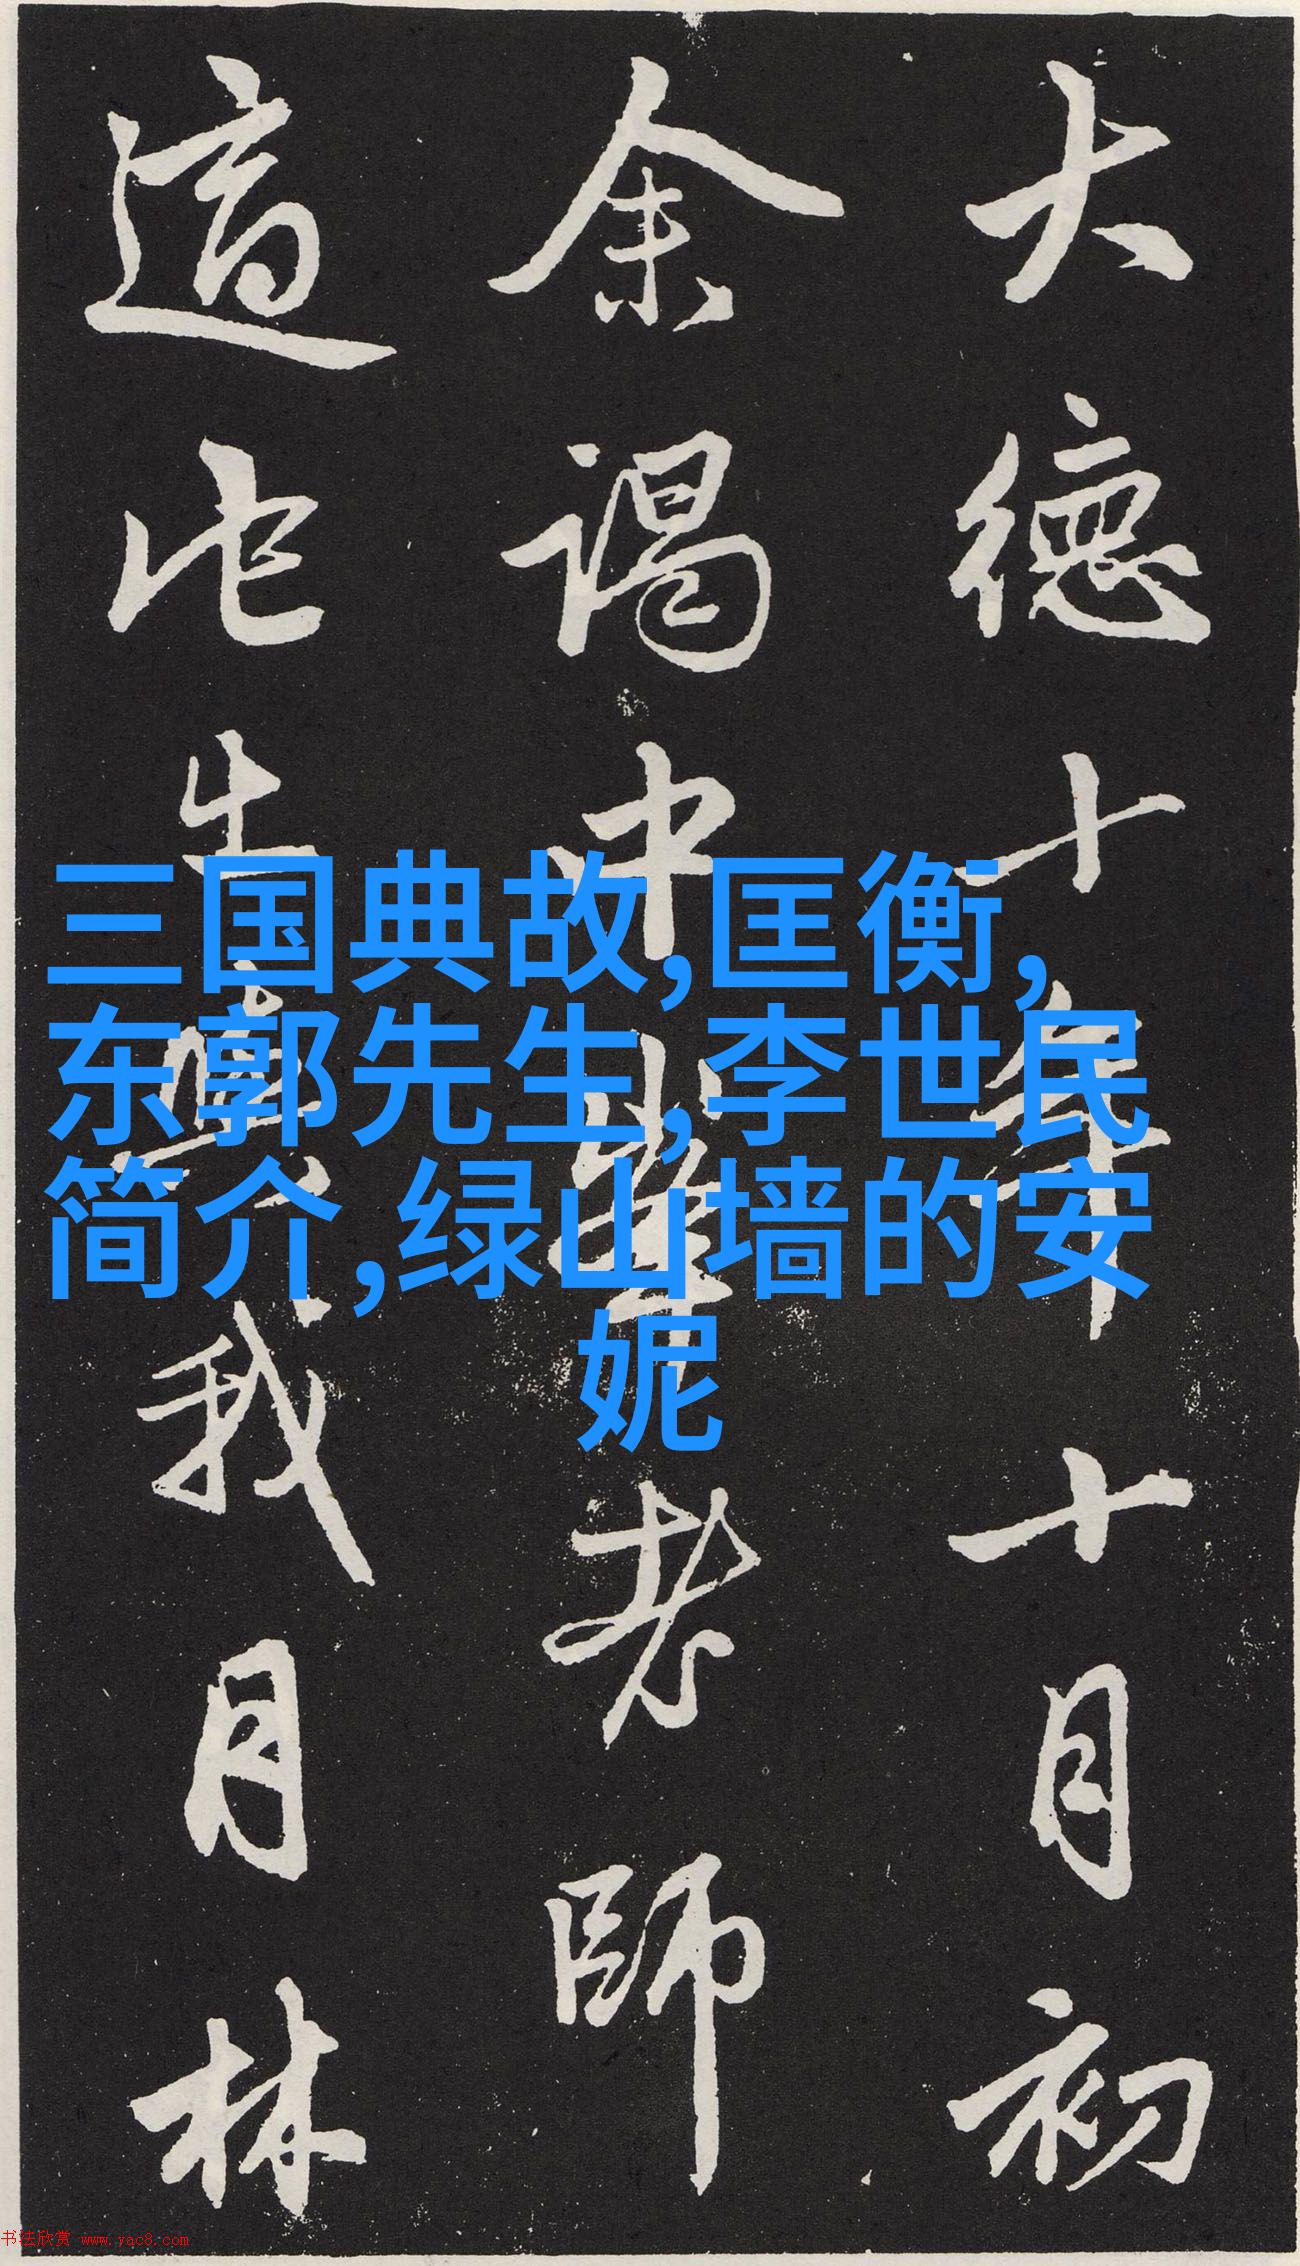 大德十一年十月初
余謁中峯老師
適此生與我月林
三国典故,匡衡,
东郭先生,李世民
简介,绿山墙的安
妮
书法欣赏 www.yac8.com